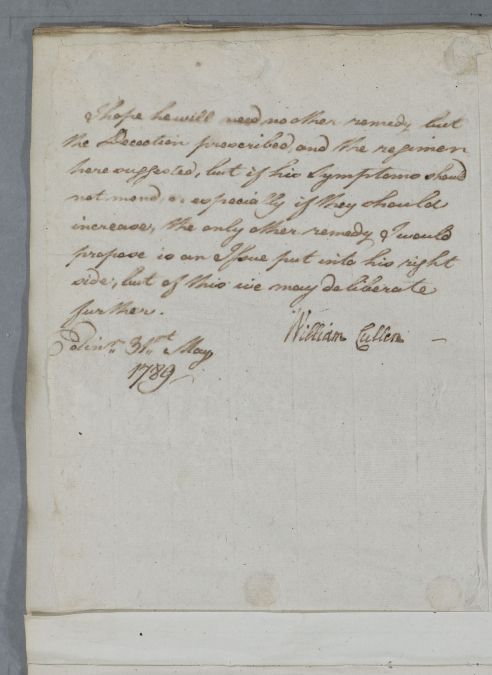 I hope he will need no other remedy but
the Decoction prescribed, and the regimen
here suggested, but if his Symptoms should
not mend, or especially if they should
increase, the only other remedy I would
propose is an Issue put into his right
side, but of this we may deliberate
further.
William Cullen
Edinr. 31st May
1789